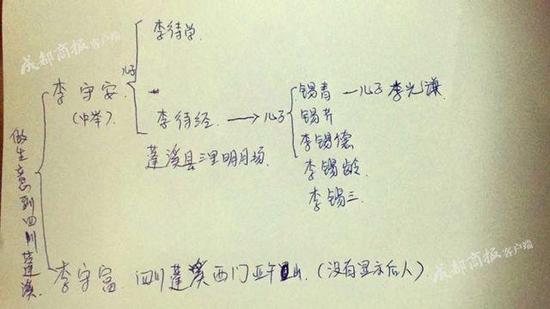 成都商报客户端
李待学.
儿子
李守安
(中举).
李待经 → 儿子
锡青 — 儿子 李光谦
锡卉
李锡德
李锡龄
李锡三.
蓬溪县三里明月场.
做生意到四川蓬溪.
李守富. 四川蓬溪西门 山. (没有显示后人)
成都商报客户端